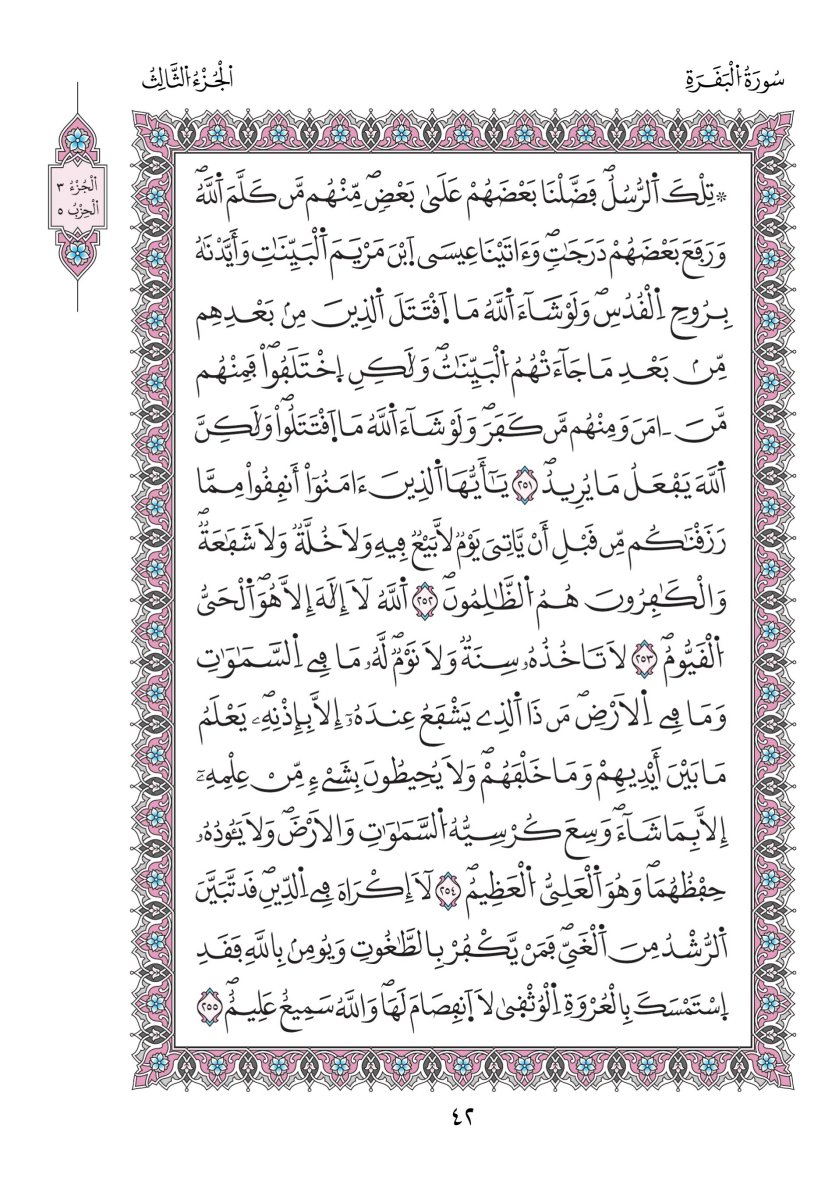 سُورَةُ الْبَقَرَةِ
الْجُزْءُ الثَّالِثُ
اَلْجُزْءُ ٣
اَلْحِزْبُ ٥
۞تِلْكَ اَ۬لرُّسُلُ فَضَّلْنَا بَعْضَهُمْ عَلَىٰ بَعْضٖۖ مِّنْهُم مَّن كَلَّمَ اَ۬للَّهُۖ
وَرَفَعَ بَعْضَهُمْ دَرَجَٰتٖۖ وَءَاتَيْنَا عِيسَى اَ۪بْنَ مَرْيَمَ اَ۬لْبَيِّنَٰتِ وَأَيَّدْنَٰهُ
بِرُوحِ اِ۬لْقُدُسِۖ وَلَوْ شَآءَ اَ۬للَّهُ مَا اَ۪قْتَتَلَ اَ۬لذِينَ مِنۢ بَعْدِهِم
مِّنۢ بَعْدِ مَا جَآءَتْهُمُ اُ۬لْبَيِّنَٰتُۖ وَلَٰكِنِ اِ۪خْتَلَفُواْۖ فَمِنْهُم
مَّنَ اٰمَنَ وَمِنْهُم مَّن كَفَرَۖ وَلَوْ شَآءَ اَ۬للَّهُ مَا اَ۪قْتَتَلُواْۖ وَلَٰكِنَّ
اَ۬للَّهَ يَفْعَلُ مَا يُرِيدُۖ ٢٥١ يَٰٓأَيُّهَا اَ۬لذِينَ ءَامَنُوٓاْ أَنفِقُواْ مِمَّا
رَزَقْنَٰكُم مِّن قَبْلِ أَنْ يَّاتِيَ يَوْمٞ لَّا بَيْعٞ فِيهِ وَلَا خُلَّةٞ وَلَا شَفَٰعَةٞۖ
وَالْكَٰفِرُونَ هُمُ اُ۬لظَّٰلِمُونَۖ ٢٥٢ اَ۬للَّهُ لَآ إِلَٰهَ إِلَّا هُوَۖ اَ۬لْحَيُّ
اُ۬لْقَيُّومُۖ ٢٥٣ لَا تَاخُذُهُۥ سِنَةٞ وَلَا نَوْمٞۖ لَّهُۥ مَا فِي اِ۬لسَّمَٰوَٰتِ
وَمَا فِي اِ۬لَارْضِۖ مَن ذَا اَ۬لذِے يَشْفَعُ عِندَهُۥٓ إِلَّا بِإِذْنِهِۦۖ يَعْلَمُ
مَا بَيْنَ أَيْدِيهِمْ وَمَا خَلْفَهُمْۖ وَلَا يُحِيطُونَ بِشَےْءٖ مِّنْ عِلْمِهِۦٓ
إِلَّا بِمَا شَآءَۖ وَسِعَ كُرْسِيُّهُ اُ۬لسَّمَٰوَٰتِ وَالَارْضَۖ وَلَا يَـُٔودُهُۥ
حِفْظُهُمَاۖ وَهُوَ اَ۬لْعَلِيُّ اُ۬لْعَظِيمُۖ ٢٥٤ لَآ إِكْرَاهَ فِي اِ۬لدِّينِۖ قَد تَّبَيَّنَ
اَ۬لرُّشْدُ مِنَ اَ۬لْغَيِّۖ فَمَنْ يَّكْفُرْ بِالطَّٰغُوتِ وَيُومِنۢ بِاللَّهِ فَقَدِ
اِ۪سْتَمْسَكَ بِالْعُرْوَةِ اِ۬لْوُثْقَىٰ لَا اَ۪نفِصَامَ لَهَاۖ وَاللَّهُ سَمِيعٌ عَلِيمٌۖ ٢٥٥
٤٢